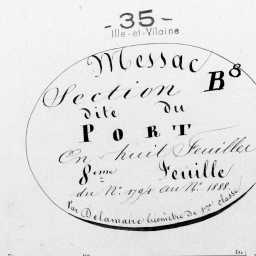 - 35 -
Ille-et-Vilaine
Messac
B8
Section
dite du
PORT
En huit Feuilles
8ème Feuille
du No. 1794 au No. 1888.
Par Delamarre Géomètre de 1ère classe